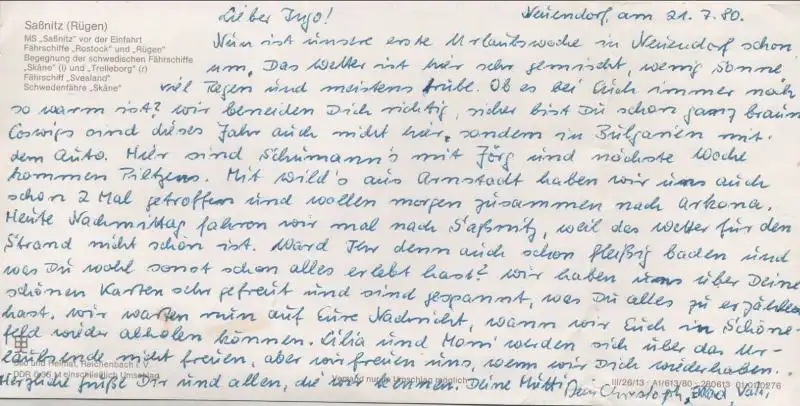 Saßnitz (Rügen)
MS „Saßnitz" vor der Einfahrt
Fährschiffe „Rostock" und „Rügen"
Begegnung der schwedischen Fährschiffe
„Skåne" (l) und „Trelleborg" (r)
Fährschiff „Svealand"
Schwedenfähre „Skåne"
Lieber Ingo! Neuendorf, am 21.7.80.
Nun ist unsere erste Urlaubswoche in Neuendorf schon
um. Das Wetter ist hier sehr gemischt, wenig Sonne
viel Regen und meistens trübe. Ob es bei Euch immer noch
so warm ist? Wir beneiden Dich richtig, sicher bist Du schon ganz braun
Coswigs sind dieses Jahr auch nicht hier, sondern in Bulgarien mit
dem Auto. Hier sind Schumann's mit Jörg und nächste Woche
kommen Pieltzens. Mit Wild's aus Arnstadt haben wir uns auch
schon 2 Mal getroffen und wollen morgen zusammen nach Arkona.
Heute Nachmittag fahren wir mal nach Saßnitz, weil das Wetter für den
Strand nicht schön ist. Ward Ihr denn auch schon fleißig baden und
was Du wohl sonst schon alles erlebt hast? Wir haben uns über Deine
schönen Karten sehr gefreut und sind gespannt, was Du alles zu erzählen
hast. Wir warten nun auf Eure Nachricht, wann wir Euch in Schöne-
feld wieder abholen können. Silia und Moni werden sich über das Ur-
laubsende nicht freuen, aber wir freuen uns, wenn wir Dich wiederhaben.
Herzliche Grüße Dir und allen, die wir kennen. Deine Mutti, Dein Christoph, Vati
Bild und Heimat, Reichenbach i. V.
DDR 0,96 M einschließlich Umschlag
Versand nur im Umschlag möglich
III/26/13 · A1/613/80 · 280613 01 01 0276